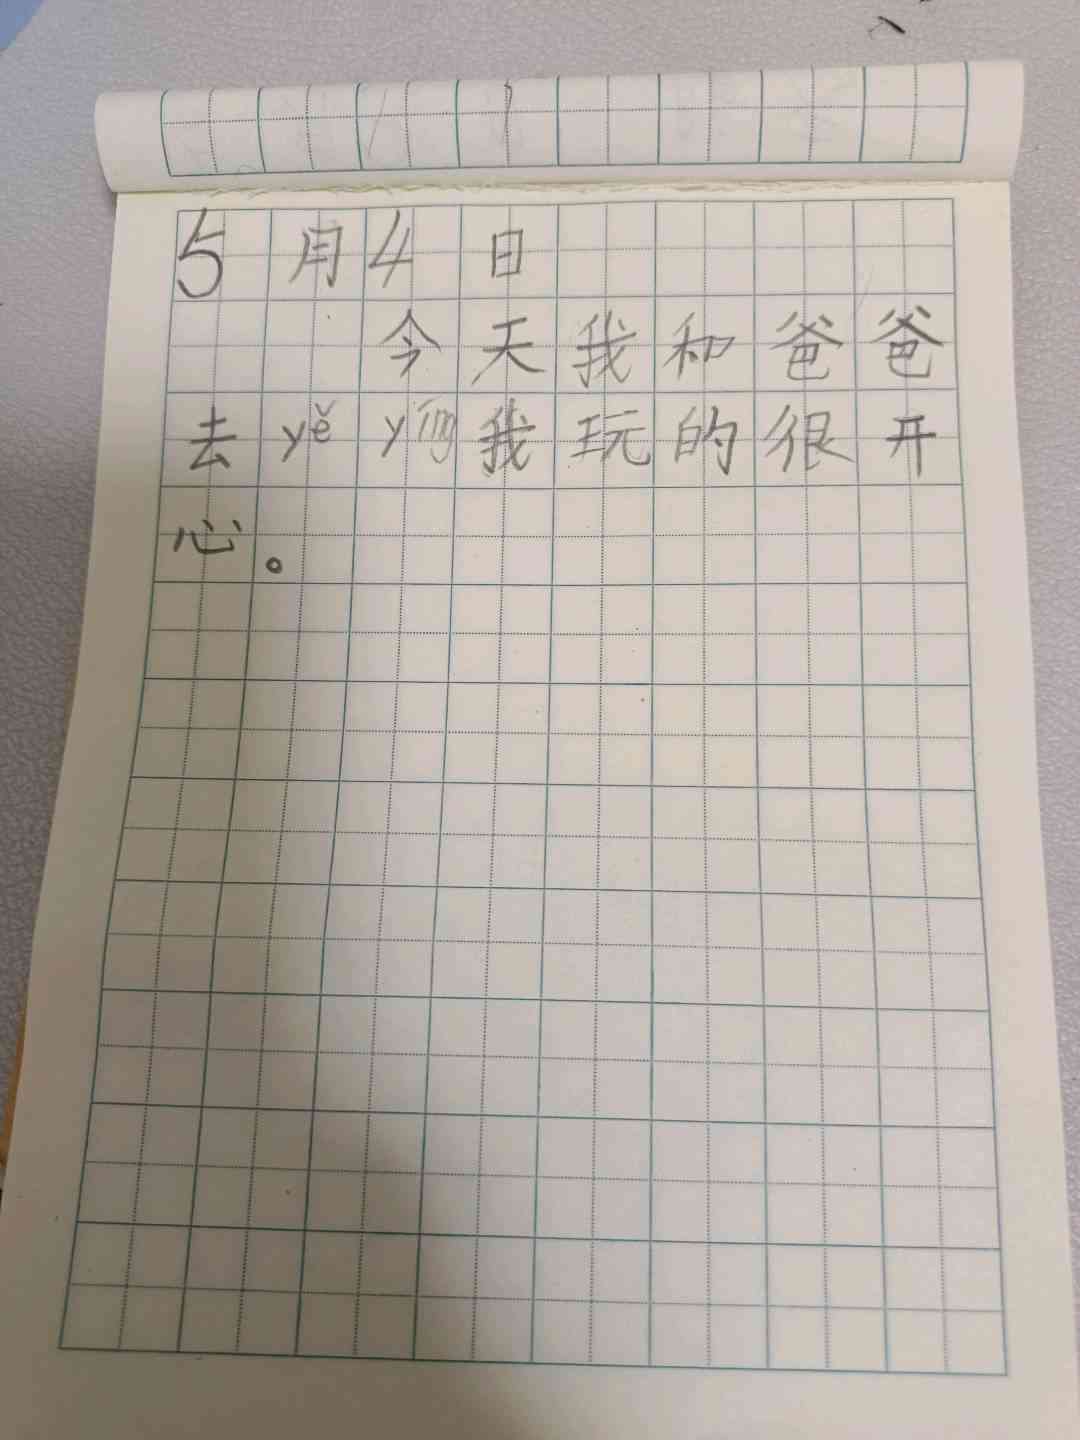 5月4日
今天我和爸爸
去yě yíng我玩的很开
心。